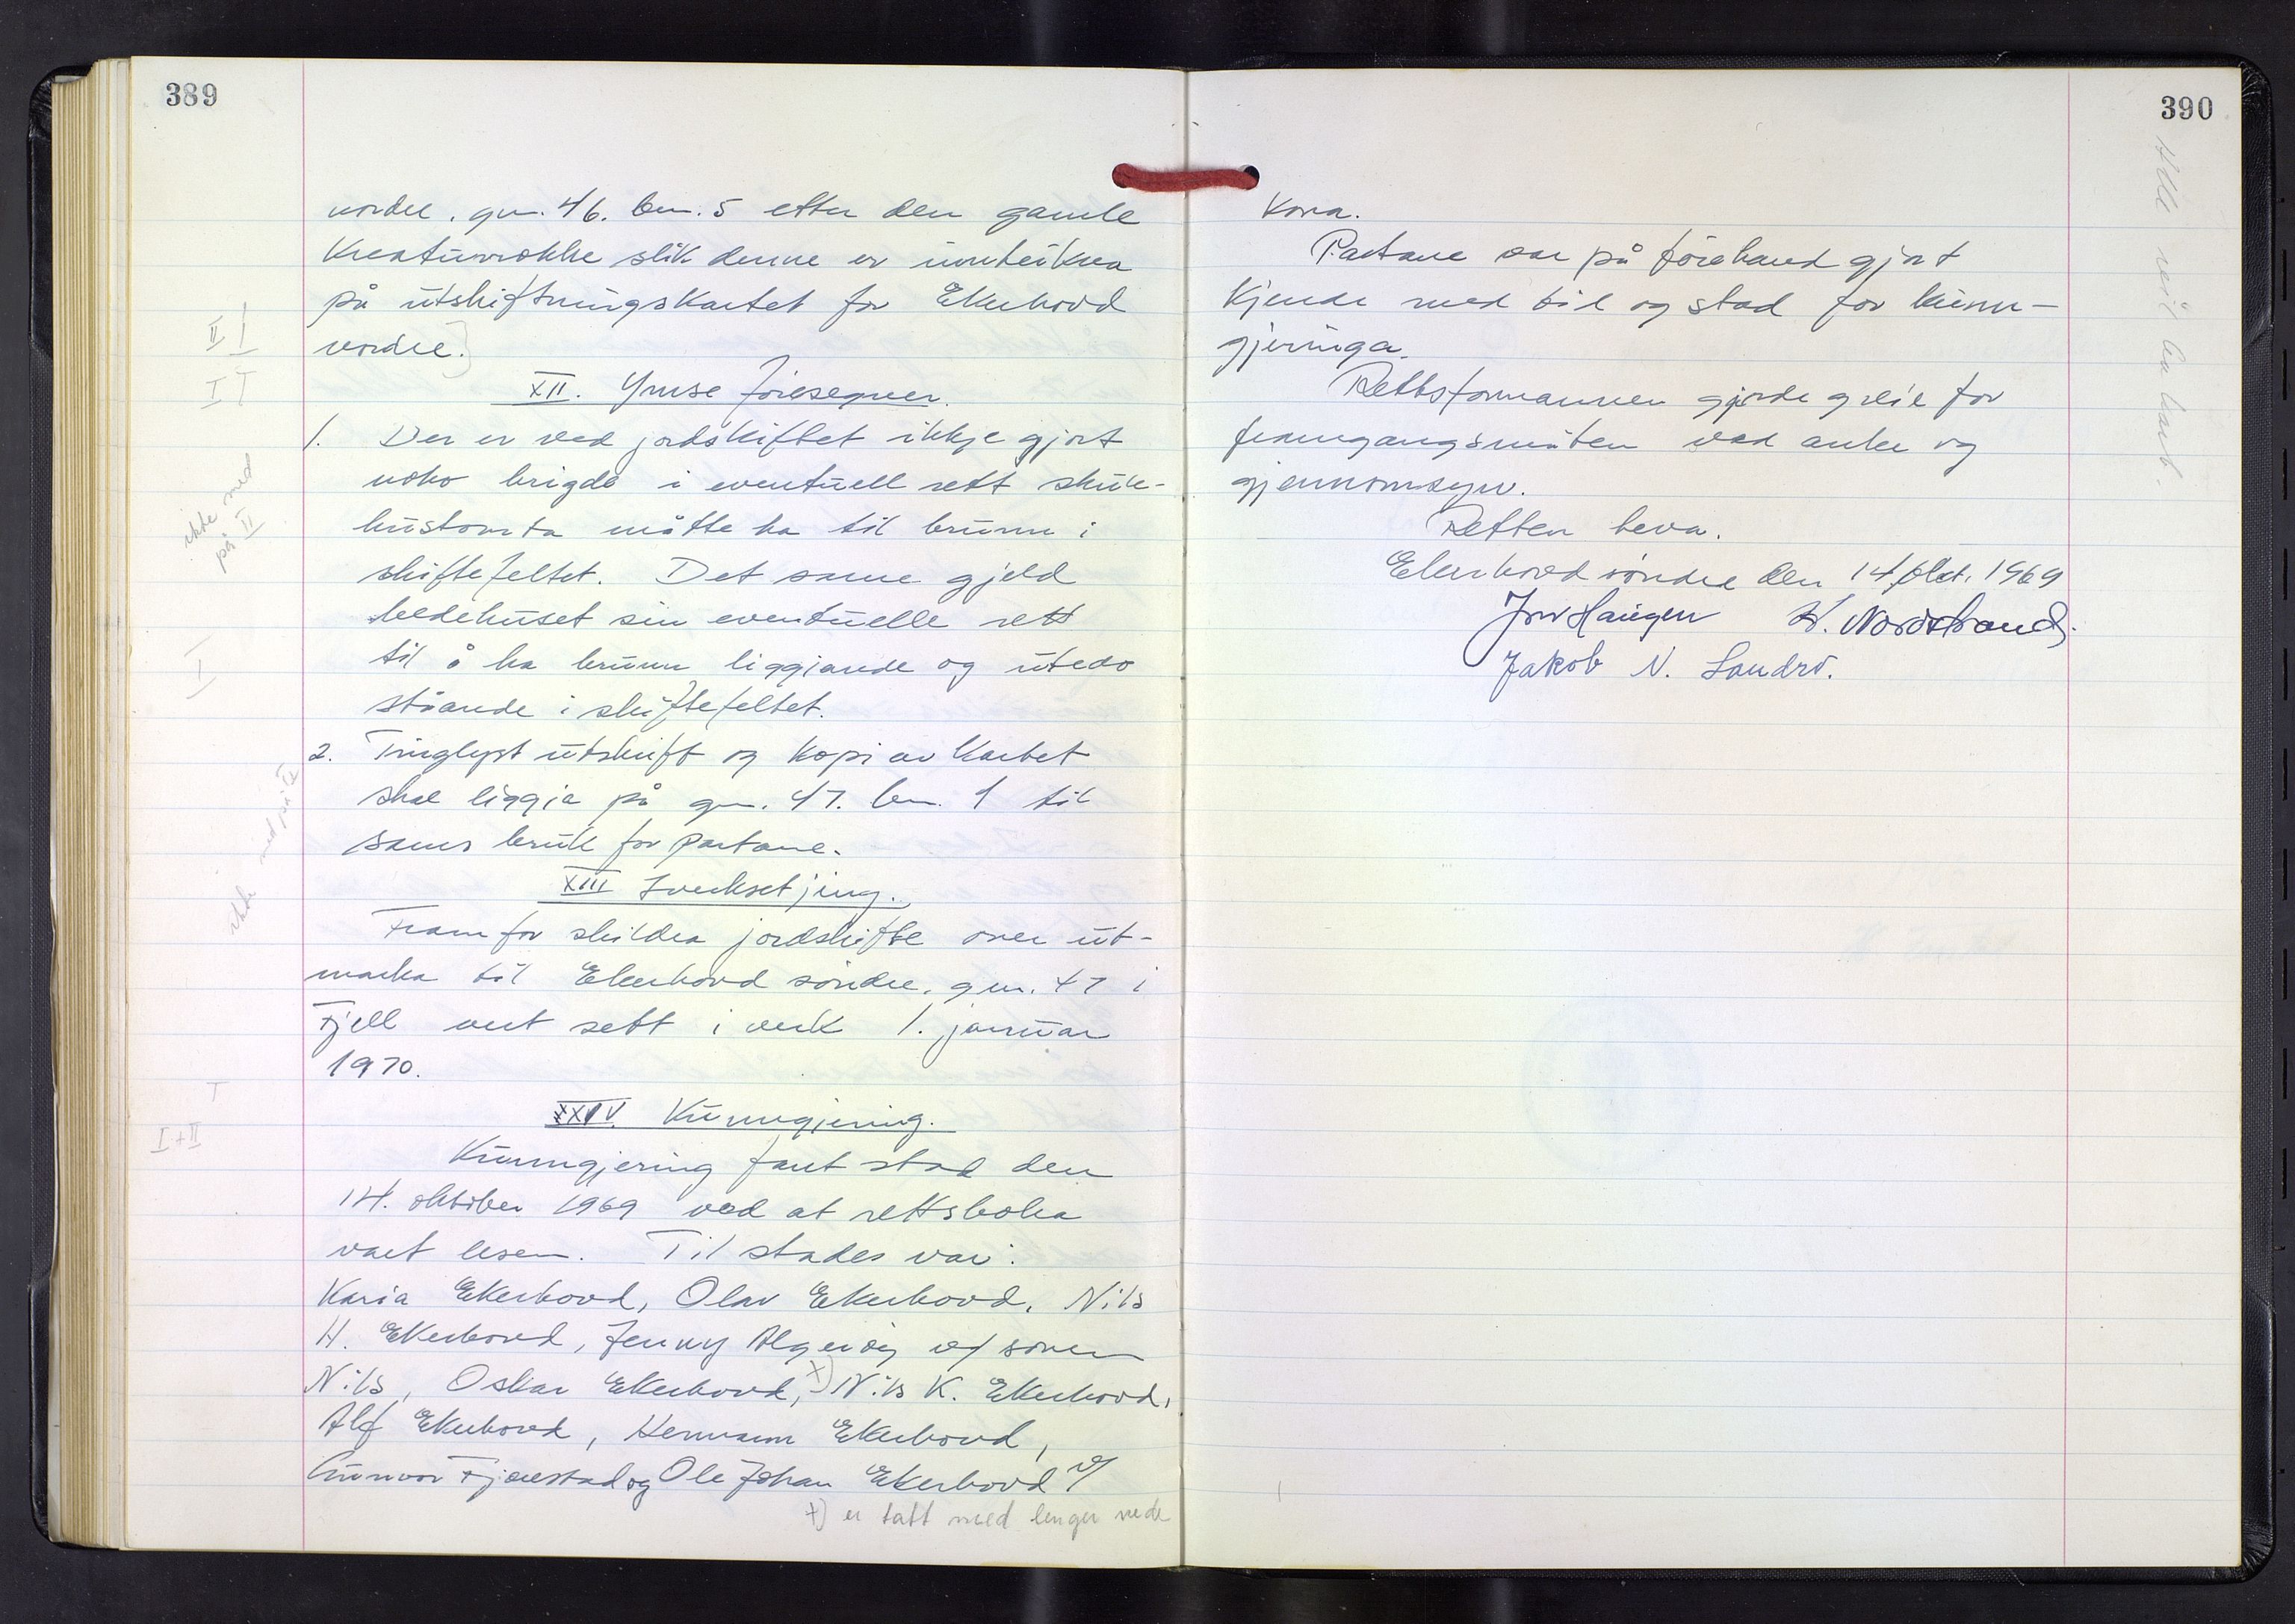 389
nordre, gnr. 46. bnr. 5 etter den gamle
Kreaturrekke slik denne er innteikna
på utskiftningskartet for Ekerhovd
nordre.
II I
I I
XII. Ymse føresegner.
1. Der er ved jordskiftet ikkje gjort
noko brigde i eventuell rett skule-
hustomta måtte ha til brunn i
skiftefeltet. Det same gjeld
bedehuset sin eventuelle rett
til å ha brunn liggjande og utedo
ståande i skiftefeltet.
ikke med
på II
I
2. Tinglyst utskrift og kopi av kartet
skal liggja på gnr. 47. bnr. 1 til
sams bruk for partane.
ikke med på II
XIII Iverksetjing.
Framfor skildra jordskifte over ut-
marka til Ekerhovd søndre, gnr. 47 i
Fjell vert sett i verk 1. januar
1970.
I
I+II
XXIV. Kunngjering.
Kunngjering fant stad den
14. oktober 1969 ved at rettsboka
vart lesen. Til stades var:
Karia Ekerhovd, Olav Ekerhovd, Nils
H. Ekerhovd, Jenny Algerøy v/ sonen
Nils, Oskar Ekerhovd, x) Nils K. Ekerhovd,
Alf Ekerhovd, Hermann Ekerhovd,
Gunvor Fjærestad og Ole Johan Ekerhovd v/
x) er tatt med lenger nede
390
kona.
Partane var på førehand gjort
kjende med tid og stad for kunn-
gjeringa.
Rettsformannen gjorde greie for
framgangsmåten ved anke og
gjennomsyn.
Retten heva.
Ekerhovd søndre den 14. okt. 1969
Jon Haugen K. Nordstrand.
Jakob N. Landrø.